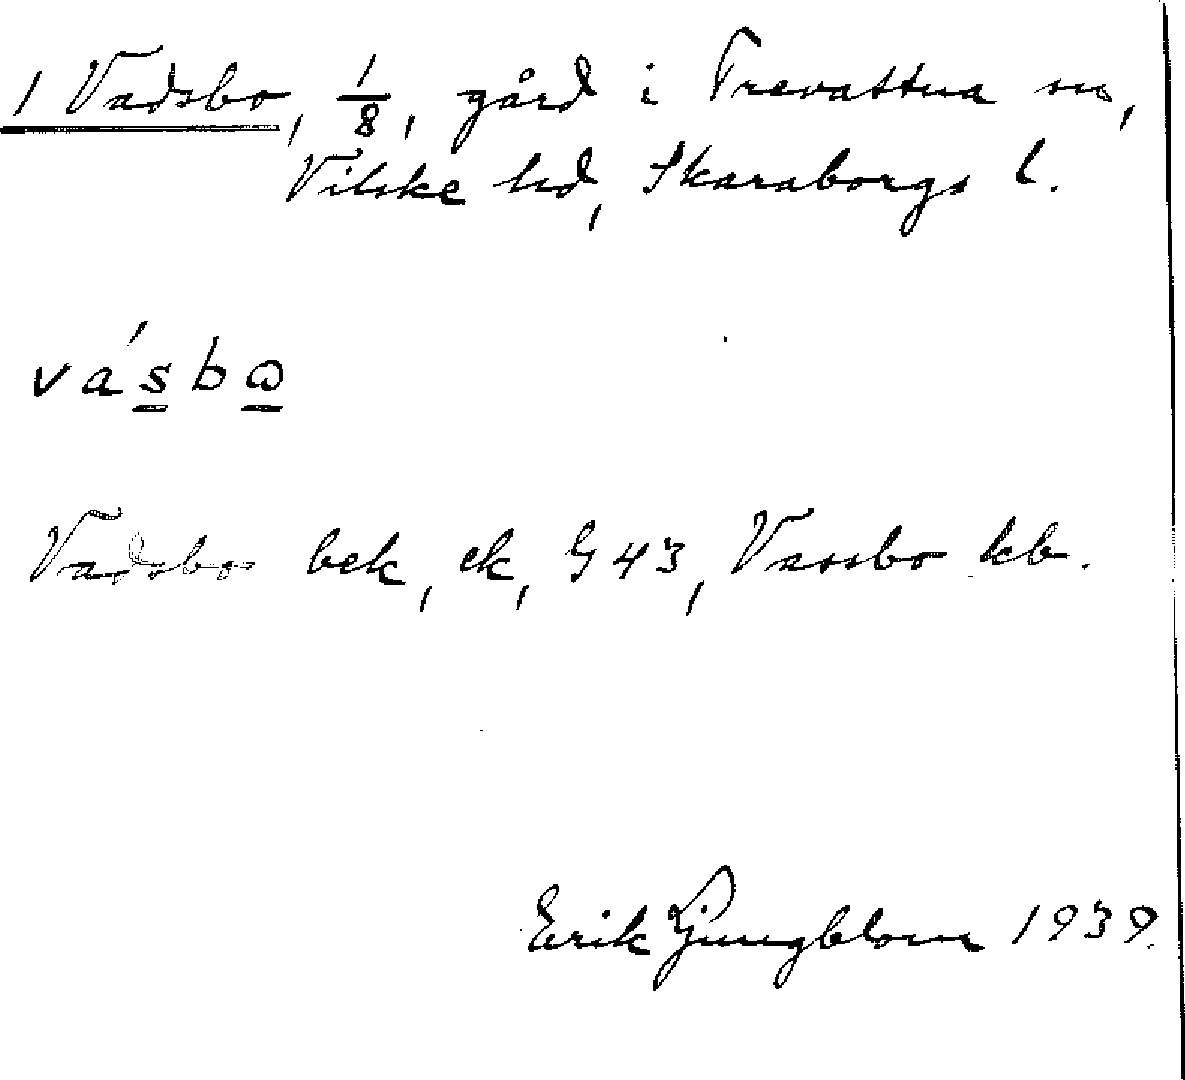 1 Vadsbo, 1/8, gård i Trevattna sn,
Vilske hd, Skaraborgs l.
vá's b ω
Vadsbo bek, ek, G 43, Vassbo kb.
Erik Ljungblom 1939.